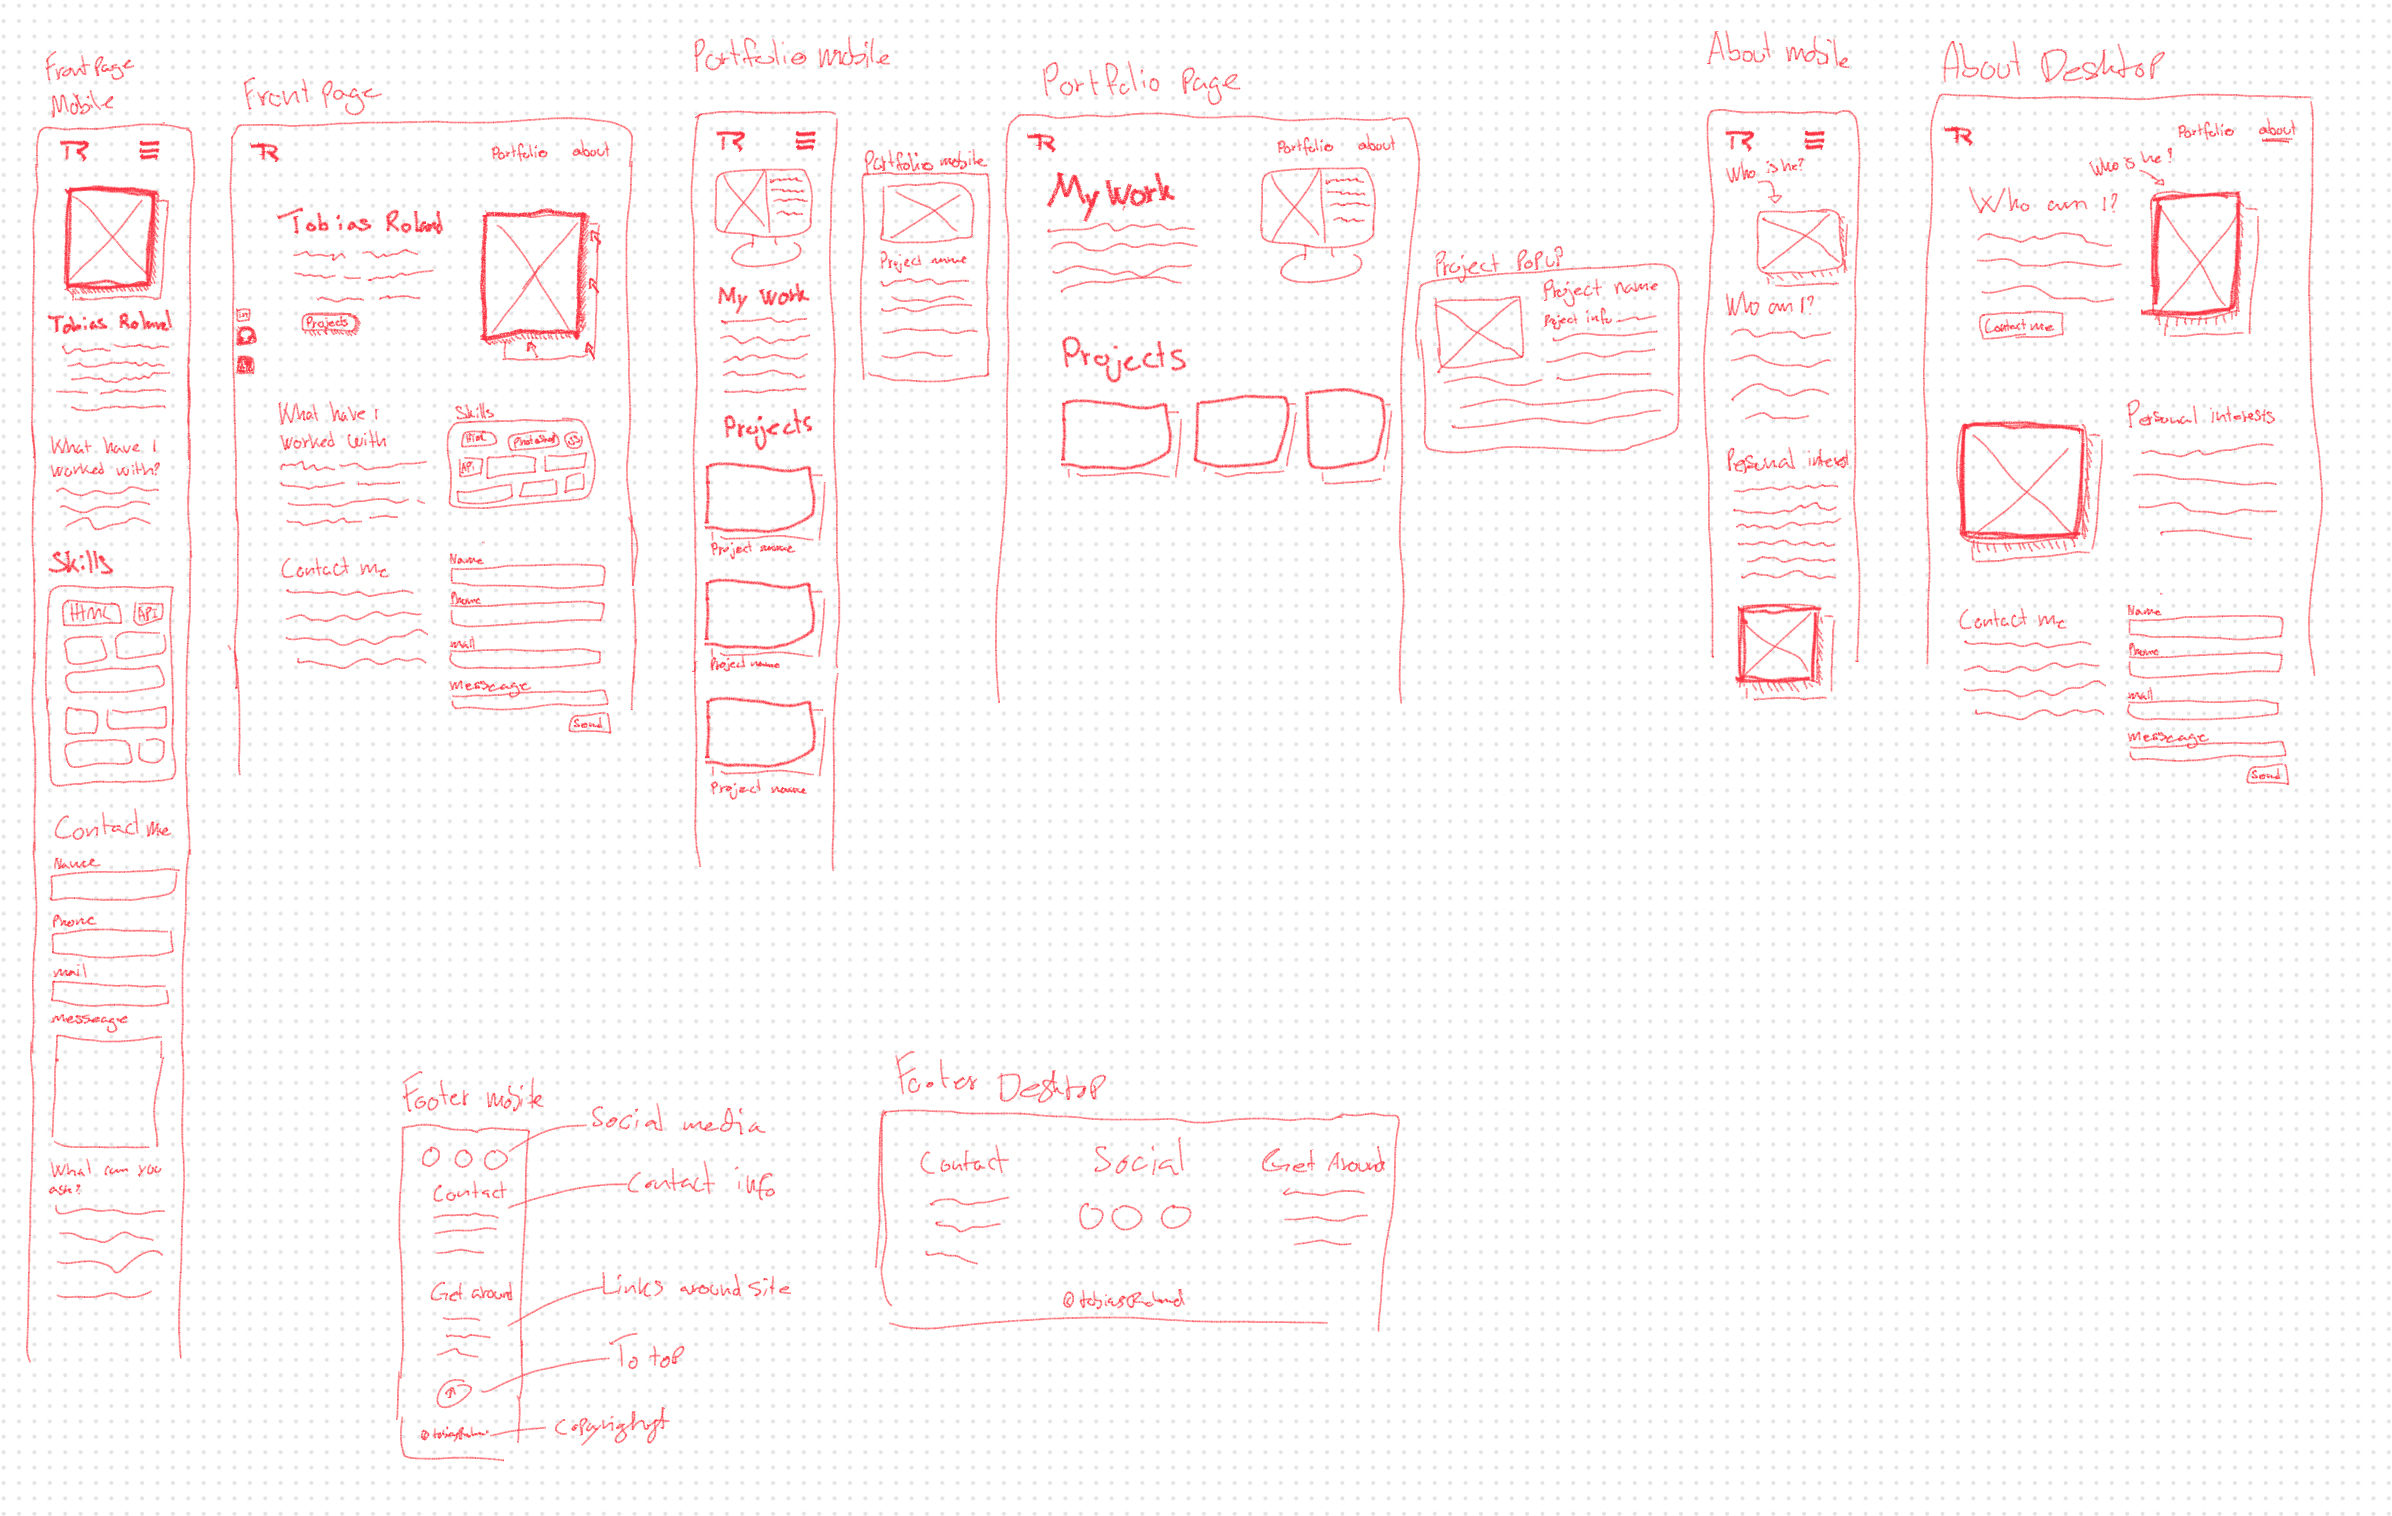 Front Page
Mobile
TR
Tobias Roland
What have I
worked with?
Skills
Html
API
Contact me
Name
Phone
mail
messeage
What can you
ask?
Front page
TR
Portfolio about
Tobias Roland
in
Projects
What have I
worked with
Skills
Html Photoshop JS
API
Contact me
Name
Phone
mail
messeage
Send
Portfolio mobile
TR
My Work
Projects
Project name
Project name
Project name
Portfolio mobile
Project name
Portfolio Page
TR
Portfolio about
My Work
Projects
Project PopUP
Project name
Project info
About mobile
TR
Who is he?
Who am I?
Personal interest
About Desktop
TR
Portfolio about
Who is he?
Who am I?
Contact me
Personal interests
Contact me
Name
Phone
mail
messeage
Send
Footer mobile
Social media
Contact
Contact info
Get around
Links around site
To top
©tobiasRoland
Copyrighyt
Footer Desktop
Contact
Social
Get Around
©tobiasRoland